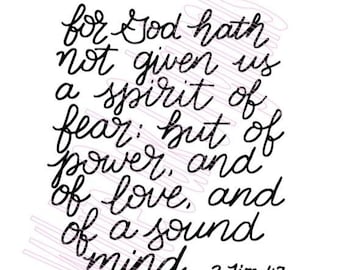 for God hath
not given us
a spirit of
fear; but of
power, and
of love, and
of a sound
mind.
2 Tim 1:7